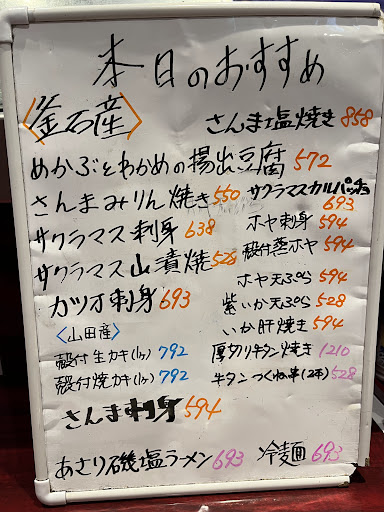 本日のおすすめ
〈釜石産〉
さんま塩焼き 858
めかぶとわかめの揚出豆腐 572
さんまみりん焼き 550
サクラマス刺身 638
サクラマス山漬焼 528
カツオ刺身 693
サクラマスカルパッチョ 693
ホヤ刺身 594
殻付蒸ホヤ 594
ホヤ天ぷら 594
紫いか天ぷら 528
いか肝焼き 594
〈山田産〉
殻付生カキ(1ヶ) 792
殻付焼カキ(1ヶ) 792
さんま刺身 594
厚切り牛タン焼き 1210
牛タンつくね串(2本) 528
あさり磯塩ラーメン 693
冷麺 693